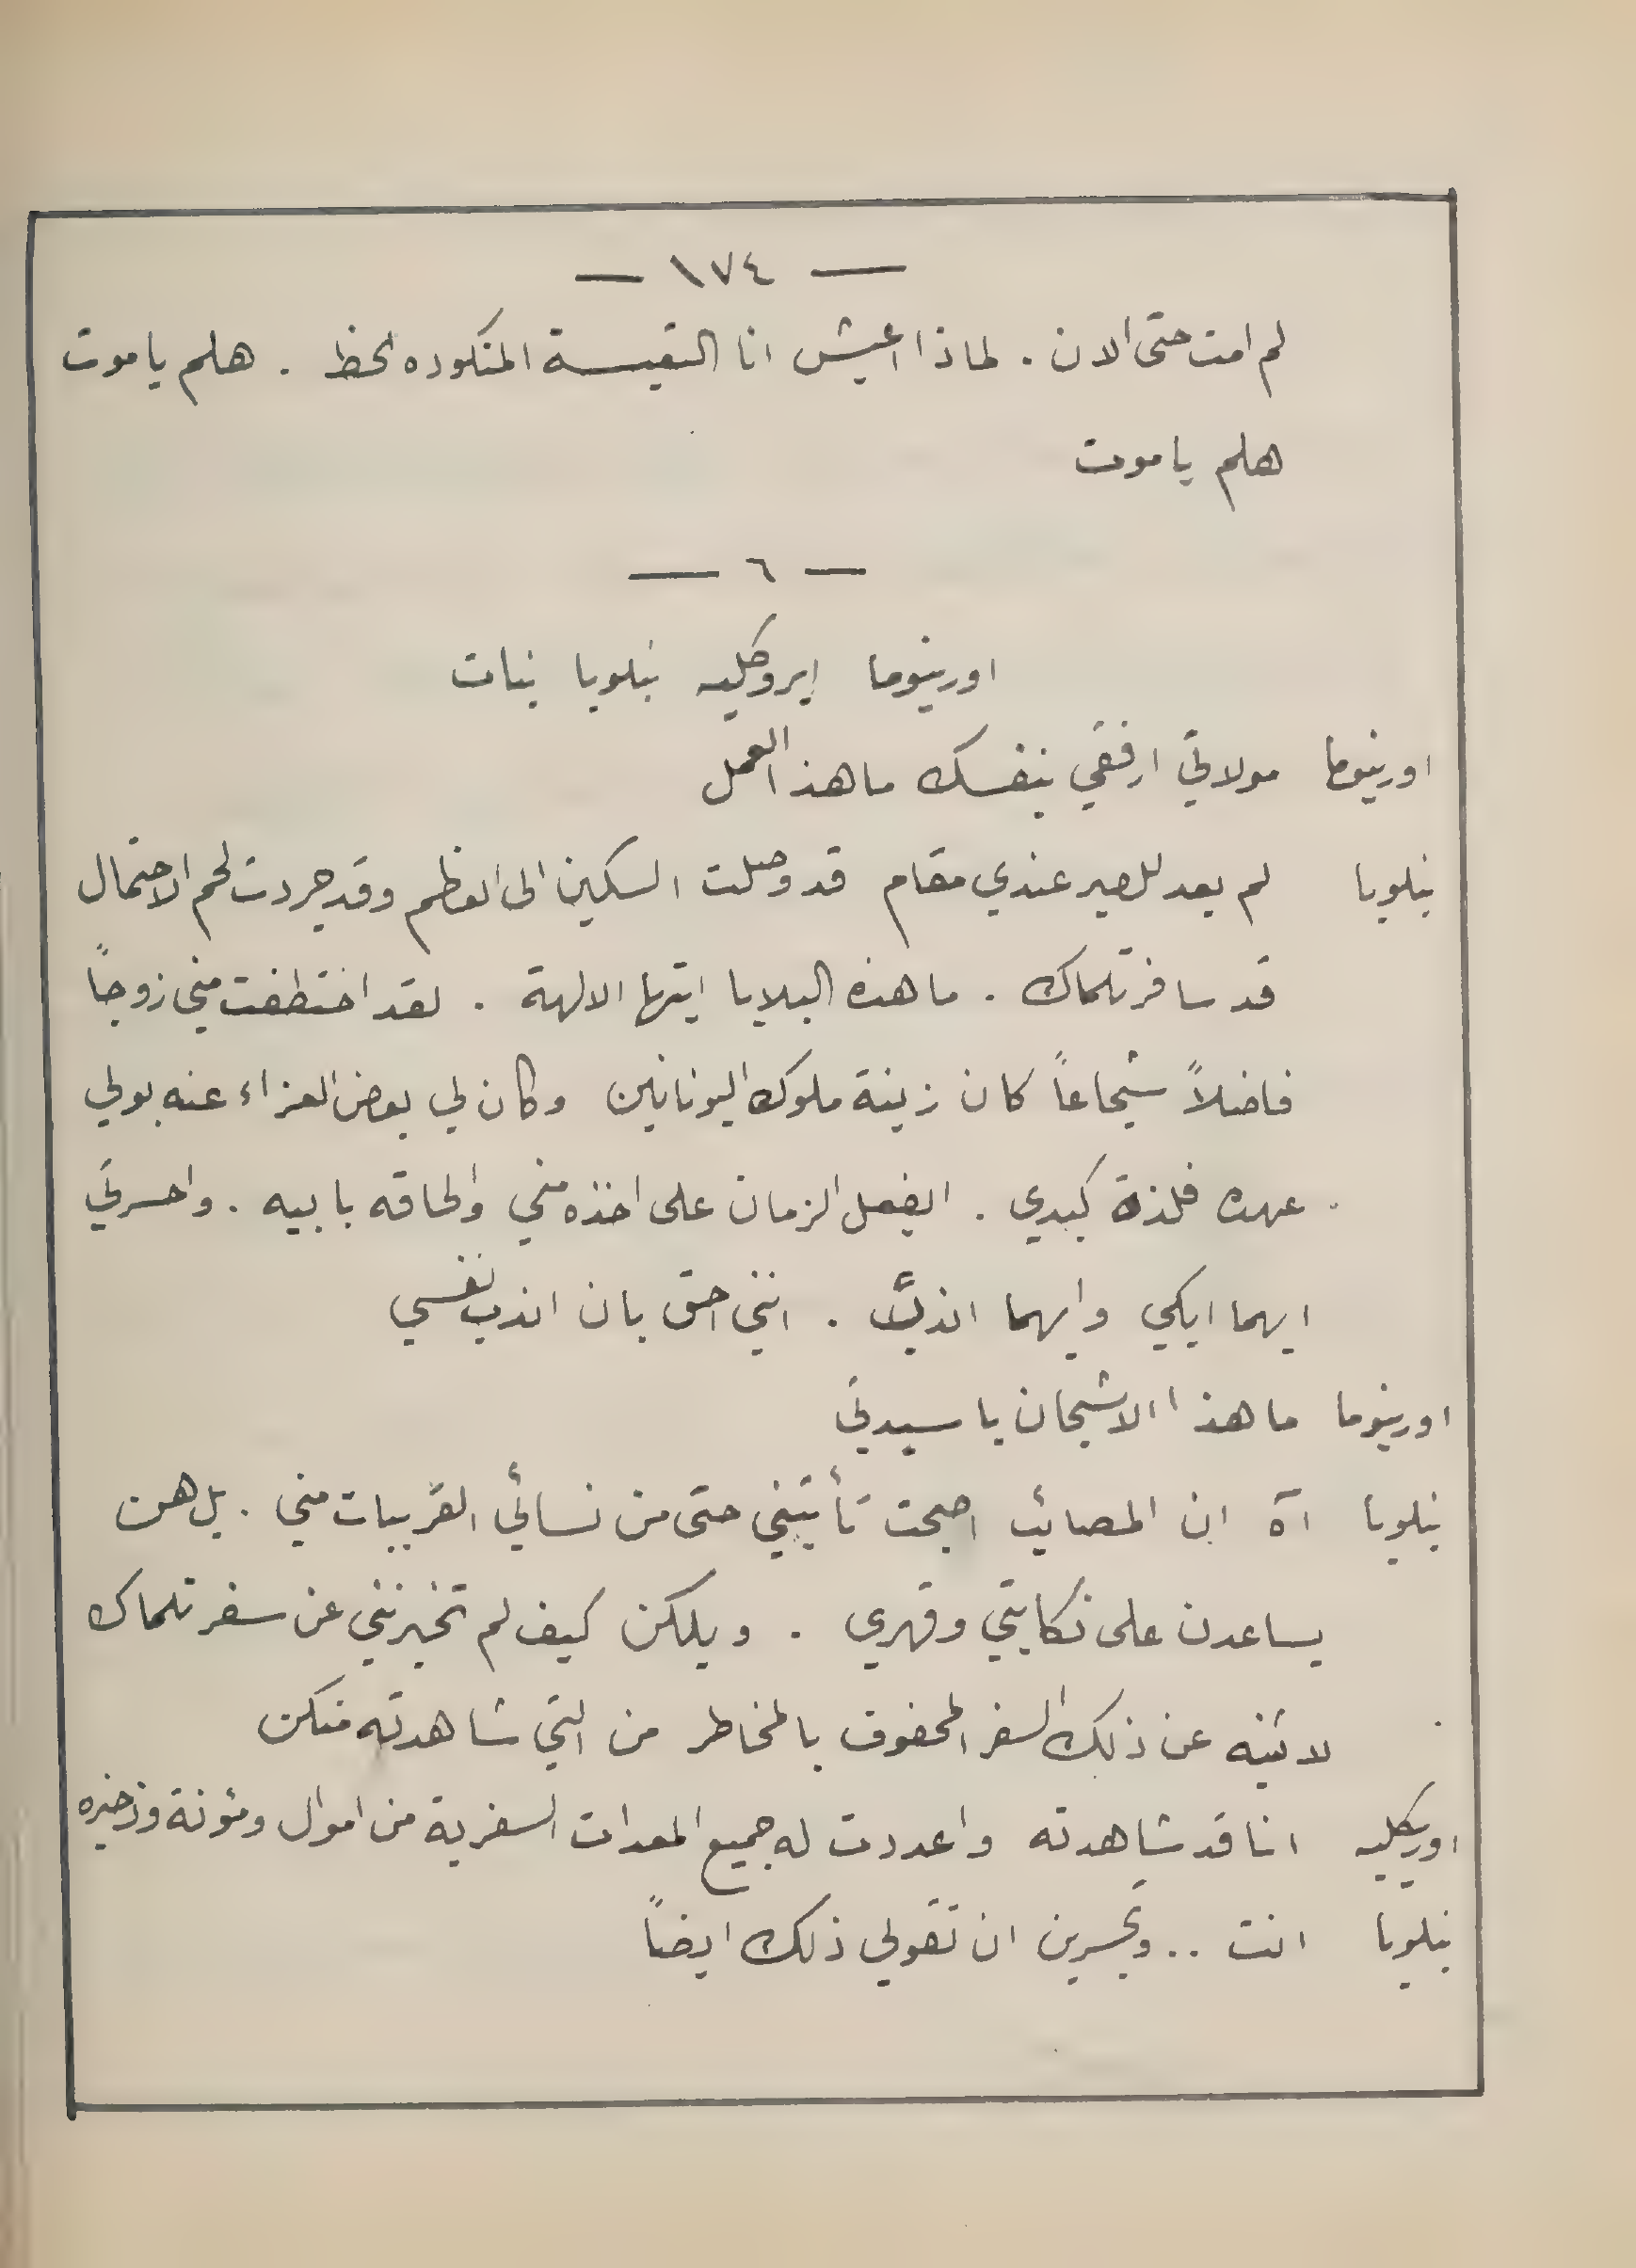 — ١٧٤ —
لم امت حتى الان . لماذا اعيش انا التعيسة المنكوده الحظ . هلم يا موت
هلم يا موت
— ٦ —
اورينوما ايروكليه بنلوبا بنات
اورينوما مولاتي ارفقي بنفسك ما هذا العمل
بنلوبا لم يعد للصبر عندي مقام قد وصلت السكين الى العظم وقد جردت لحم الاحتمال
قد سافر تلماك . ما هذه البلايا ايتها الالهة . لقد اختطفت مني زوجاً
فاضلاً شجاعاً كان زينة ملوك اليونانين وكان لي بعض العزاء عنه بولي
عهده فلذة كبدي . ايفعل الزمان على اخذه مني والحاقه بابيه . واحسرتي
ايهما ابكي وايهما اندب . انني احق بان اندب نفسي
اورينوما ما هذا الاشجان يا سيدتي
بنلوبا آه ان المصائب اصبحت تأتيني حتى من نسائي القريبات مني . بل هن
يساعدن على نكايتي وقهري . ويلكن كيف لم تخبرنني عن سفر تلماك
لاثنيه عن ذلك السفر المحفوف بالمخاطر من التي شاهدته منكن
اوريكليه انا قد شاهدته واعددت له جميع المعدات السفرية من اموال ومئونة وذخيره
بنلوبا انت .. وتجسرين ان تقولي ذلك ايضاً